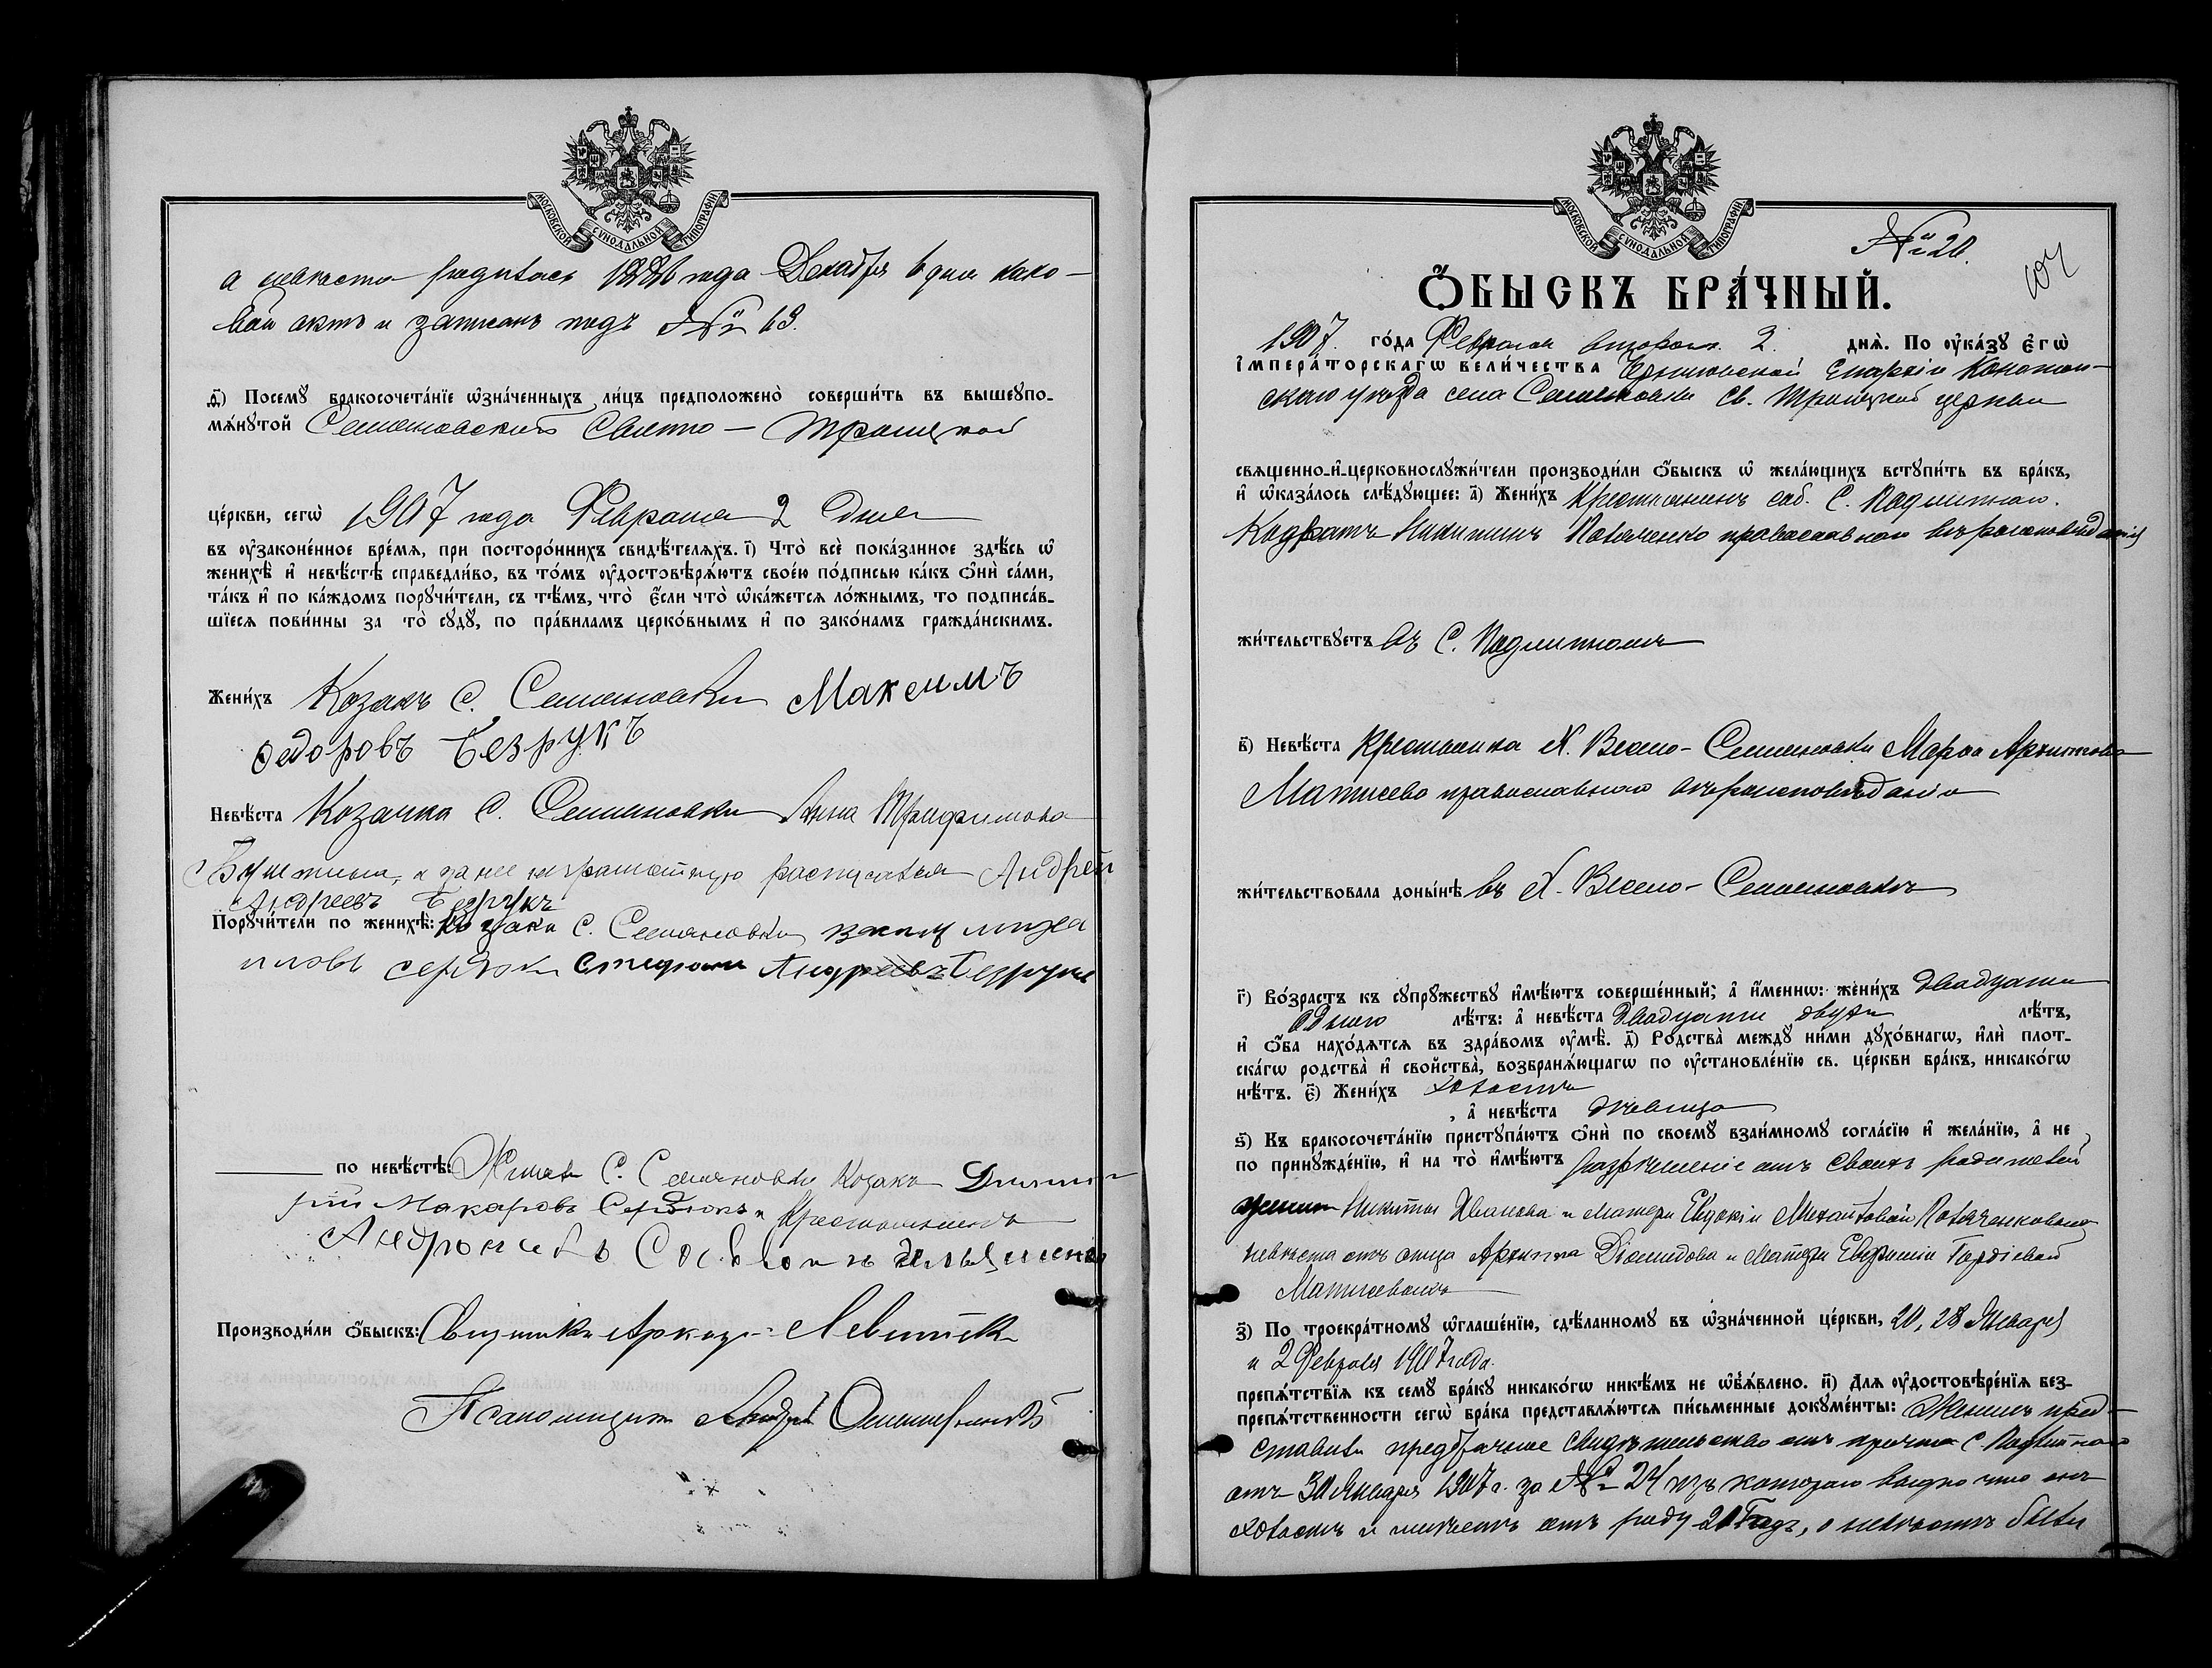 МОСКОВСКОЙ СУНОДАЛЬНОЙ ТИПОГРАФІИ
а невеста родилась 1886 года Декабря 6 дня како-
вой актъ и записанъ подъ № 63.
д҃) Посемꙋ бракосочета́нїе ѡ҆зна́ченныхъ ли́цъ предположено̀ соверши́ть въ вышеꙋпо-
мѧ́нꙋтой Семяновской Свято-Троицкой
це́ркви, сегѡ̀ 1907 года Февраля 2 дня
въ ᲂу҆законе́нное вре́мѧ, при посторо́ннихъ свидѣ́телѧхъ. і҃) Что̀ всѐ пока́занное здѣ́сь ѡ҆
женихѣ̀ и҆ невѣ́стѣ справедли́во, въ то́мъ ᲂу҆достовѣрѧ́ютъ свое́ю по́дписью ка́къ ѻ҆нѝ са́ми,
та́къ и҆ по ка́ждомъ порꙋчи́тели, съ тѣ́мъ, что̀ є҆́сли что̀ ѡ҆ка́жетсѧ ло́жнымъ, то подписа́в-
шїесѧ пови́нны за то̀ сꙋдꙋ̀, по пра́виламъ церко́внымъ и҆ по зако́намъ гражда́нскимъ.
Жени́хъ Козакъ С. Семяновки Максимъ
Федоровъ Безрукъ
Невѣ́ста Козачка С. Семяновки Анна Трифимова
а за нее неграмотную расписался Андрей
Андреевъ Безрукъ
Порꙋчи́тели по женихѣ̀: Козаки С. Семяновки
Стефанъ Андреевъ Безрукъ
по невѣ́стѣ: Жители С. Семяновки Козакъ Димит-
рий Макаровъ Сердюкъ и Крестьянинъ
Производи́ли ѻ҆́быскъ: Священникъ Аркадій Левитскій
Псаломщикъ Андрей
МОСКОВСКОЙ СУНОДАЛЬНОЙ ТИПОГРАФІИ
№ 20.
104
Ѻ҆́БЫСКЪ БРА́ЧНЫЙ.
1907. го́да Февраля второго 2. днѧ̀. По ᲂу҆ка́зꙋ є҆гѡ̀
і҆мпера́торскагѡ вели́чества Черниговской Епархіи Конотоп-
скаго уезда села Семяновки Св. Троицкой церкви
свѧщенно-и҆-церковнослꙋжи́тели производи́ли ѻ҆́быскъ ѡ҆ жела́ющихъ встꙋпи́ть въ бра́къ,
и҆ ѡ҆каза́лось слѣ́дꙋющее: а҃) Жени́хъ Крестьянинъ соб. С. Подлипнаго.
Кодратъ Никитинъ православнаго вероисповеданія
жи́тельствꙋетъ въ С. Подлипномъ
в҃) Невѣ́ста Крестьянка Х. Весело-Семяновки Марфа Архипова
Матисева православнаго вероисповеданія
жи́тельствовала доны́нѣ въ Х. Весело-Семяновке
г҃) Во́зрастъ къ сꙋпрꙋ́жествꙋ и҆мѣ́ютъ соверше́нный; а҆ и҆́меннѡ: жени́хъ двадцати
одного лѣ́тъ: а҆ невѣ́ста двадцати двухъ лѣ́тъ,
и҆ ѻ҆́ба нахо́дѧтсѧ въ здра́вомъ ᲂу҆мѣ̀. д҃) Ро́дства̀ междꙋ ни́ми дꙋхо́внагѡ, и҆лѝ плот-
ска́гѡ родства̀ и҆ свойства̀, возбранѧ́ющагѡ по ᲂу҆становле́нїю св. це́ркви бра́къ, никако́гѡ
нѣ́тъ. є҃) Жени́хъ холостъ
, а҆ невѣ́ста девица
ѕ҃) Къ бракосочета́нїю пристꙋпа́ютъ ѻ҆нѝ по своемꙋ̀ взаи́мномꙋ согла́сїю и҆ жела́нїю, а҆ не
по принꙋжде́нїю, и҆ на то̀ и҆мѣ́ютъ разрешение отъ своихъ родителей
Никиты Иванова и матери Евдокіи Михайловой
невеста отъ отца Архипа Діомидова и матери Евфиміи Гордіевой
Матисевыхъ
з҃) По троекра́тномꙋ ѡ҆глаше́нїю, сдѣ́ланномꙋ въ ѡ҆зна́ченной це́ркви, 20, 28 Января
и 2 Февраля 1907 года.
препѧ́тствїѧ къ семꙋ̀ бра́кꙋ никако́гѡ никѣ́мъ не ѡ҆б̾ѧ́влено. и҃) Длѧ ᲂу҆достовѣре́нїѧ без-
препѧ́тственности сегѡ̀ бра́ка представлѧ́ютсѧ пи́сьменные докꙋме́нты: Жених пред-
ставилъ предбрачное свидетельство отъ причта С. Подлипнаго
отъ 30 Января 1907 г. за № 24 изъ котораго видно что онъ
холостъ и имеетъ отъ роду 21 годъ, о невесте были